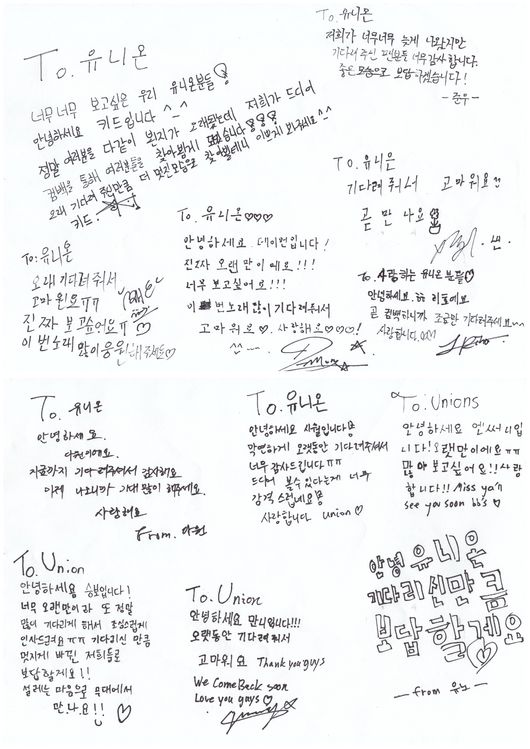 To. 유니온
너무너무 보고싶은 우리 유니온분들
안녕하세요 키드입니다 ^_^
정말 여러분을 다같이 뵌지가 오래됐는데 저희가 드디어
컴백을 통해 여러분들을 찾아뵙게 됐습니다
오래 기다려 주신만큼 더 멋진모습으로 찾아뵐테니 이쁘게 봐주세요 ^^
키드.
To. 유니온
저희가 너무너무 늦게 나왔지만
기다려주신 팬분들 너무 감사합니다.
좋은 모습으로 보답하겠습니다!
- 준우 -
To. 유니온
기다려 줘서 고마워요
곧 만나요
- 센
To: 유니온
오래 기다려줘서
고마워요ㅠㅠ
진짜 보고싶어요ㅠ♡
이번노래 많이응원해주세요♡
To. 유니온♡♡♡
안녕하세요 데이먼입니다!
진짜 오랜만이에요!!!
너무 보고싶어요!!!
이번노래 많이 기다려줘서
고마워요♡ 사랑해요♡♡♡!
^^
To. 사랑하는 유니온 분들♡
안녕하세요 리토예요
곧 컴백하니까 조금만 기다려주세요~
사랑합니다.
To. 유니온
안녕하세요.
다원이에요.
지금까지 기다려주셔서 감사해요.
이제 나오니까 기대 많이 해주세요.
사랑해요
From. 다원
To. 유니온
안녕하세요 사월입니다
막연하게 오랫동안 기다려주셔서
너무 감사드립니다ㅠㅠ
드디어 볼수있다는게 너무
감격스럽네요
사랑합니다 union♡
To: Unions
안녕하세요 엔씨입
니다! 오랫만이에요ㅠㅠ
많이 보고싶어요!! 사랑
합니다!! Miss ya'll
see you soon bb's ♡
To. Union
안녕하세요 승보입니다!
너무 오랜만이라 또 정말
많이 기다리게 해서 조심스럽게
인사드려요ㅠㅠ 기다리신 만큼
멋지게 바뀐 저희들로
보답할게요!!
설레는 마음으로 무대에서
만.나.요!! ♡
To. Union
안녕하세요 만니입니다!!!
오랫동안 기다려줘서
고마워요 Thank you guys
We ComeBack soon
Love you guys ♡
안녕 유니온
기다리신만큼
보답할게요
— from 유노 —